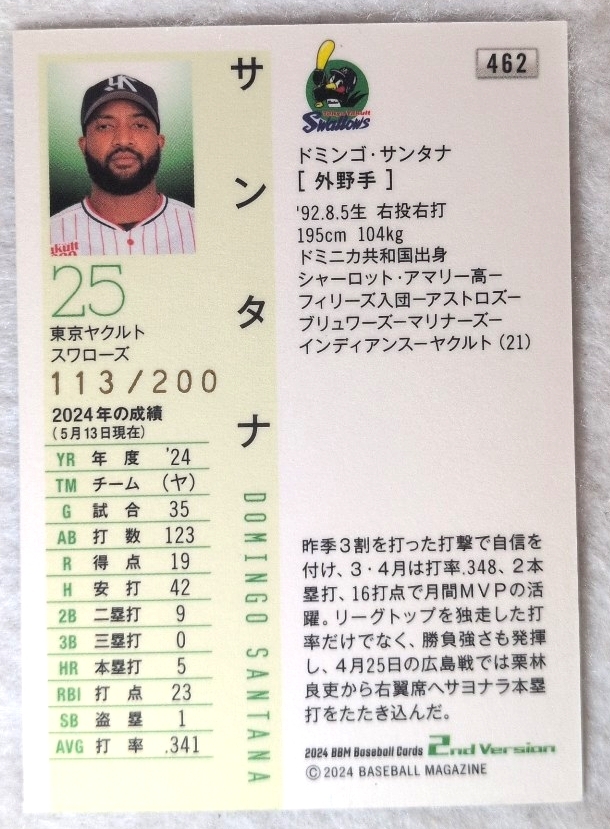 サンタナ
DOMINGO SANTANA
25
東京ヤクルト
スワローズ
113/200
2024年の成績
(5月13日現在)
YR 年度 '24
TM チーム (ヤ)
G 試合 35
AB 打数 123
R 得点 19
H 安打 42
2B 二塁打 9
3B 三塁打 0
HR 本塁打 5
RBI 打点 23
SB 盗塁 1
AVG 打率 .341
462
Swallows
ドミンゴ・サンタナ
[外野手]
'92.8.5生 右投右打
195cm 104kg
ドミニカ共和国出身
シャーロット・アマリー高ー
フィリーズ入団ーアストロズー
ブリュワーズーマリナーズー
インディアンスーヤクルト(21)
昨季3割を打った打撃で自信を
付け、3・4月は打率.348、2本
塁打、16打点で月間MVPの活
躍。リーグトップを独走した打
率だけでなく、勝負強さも発揮
し、4月25日の広島戦では栗林
良吏から右翼席へサヨナラ本塁
打をたたき込んだ。
2024 BBM Baseball Cards 2nd Version
©2024 BASEBALL MAGAZINE